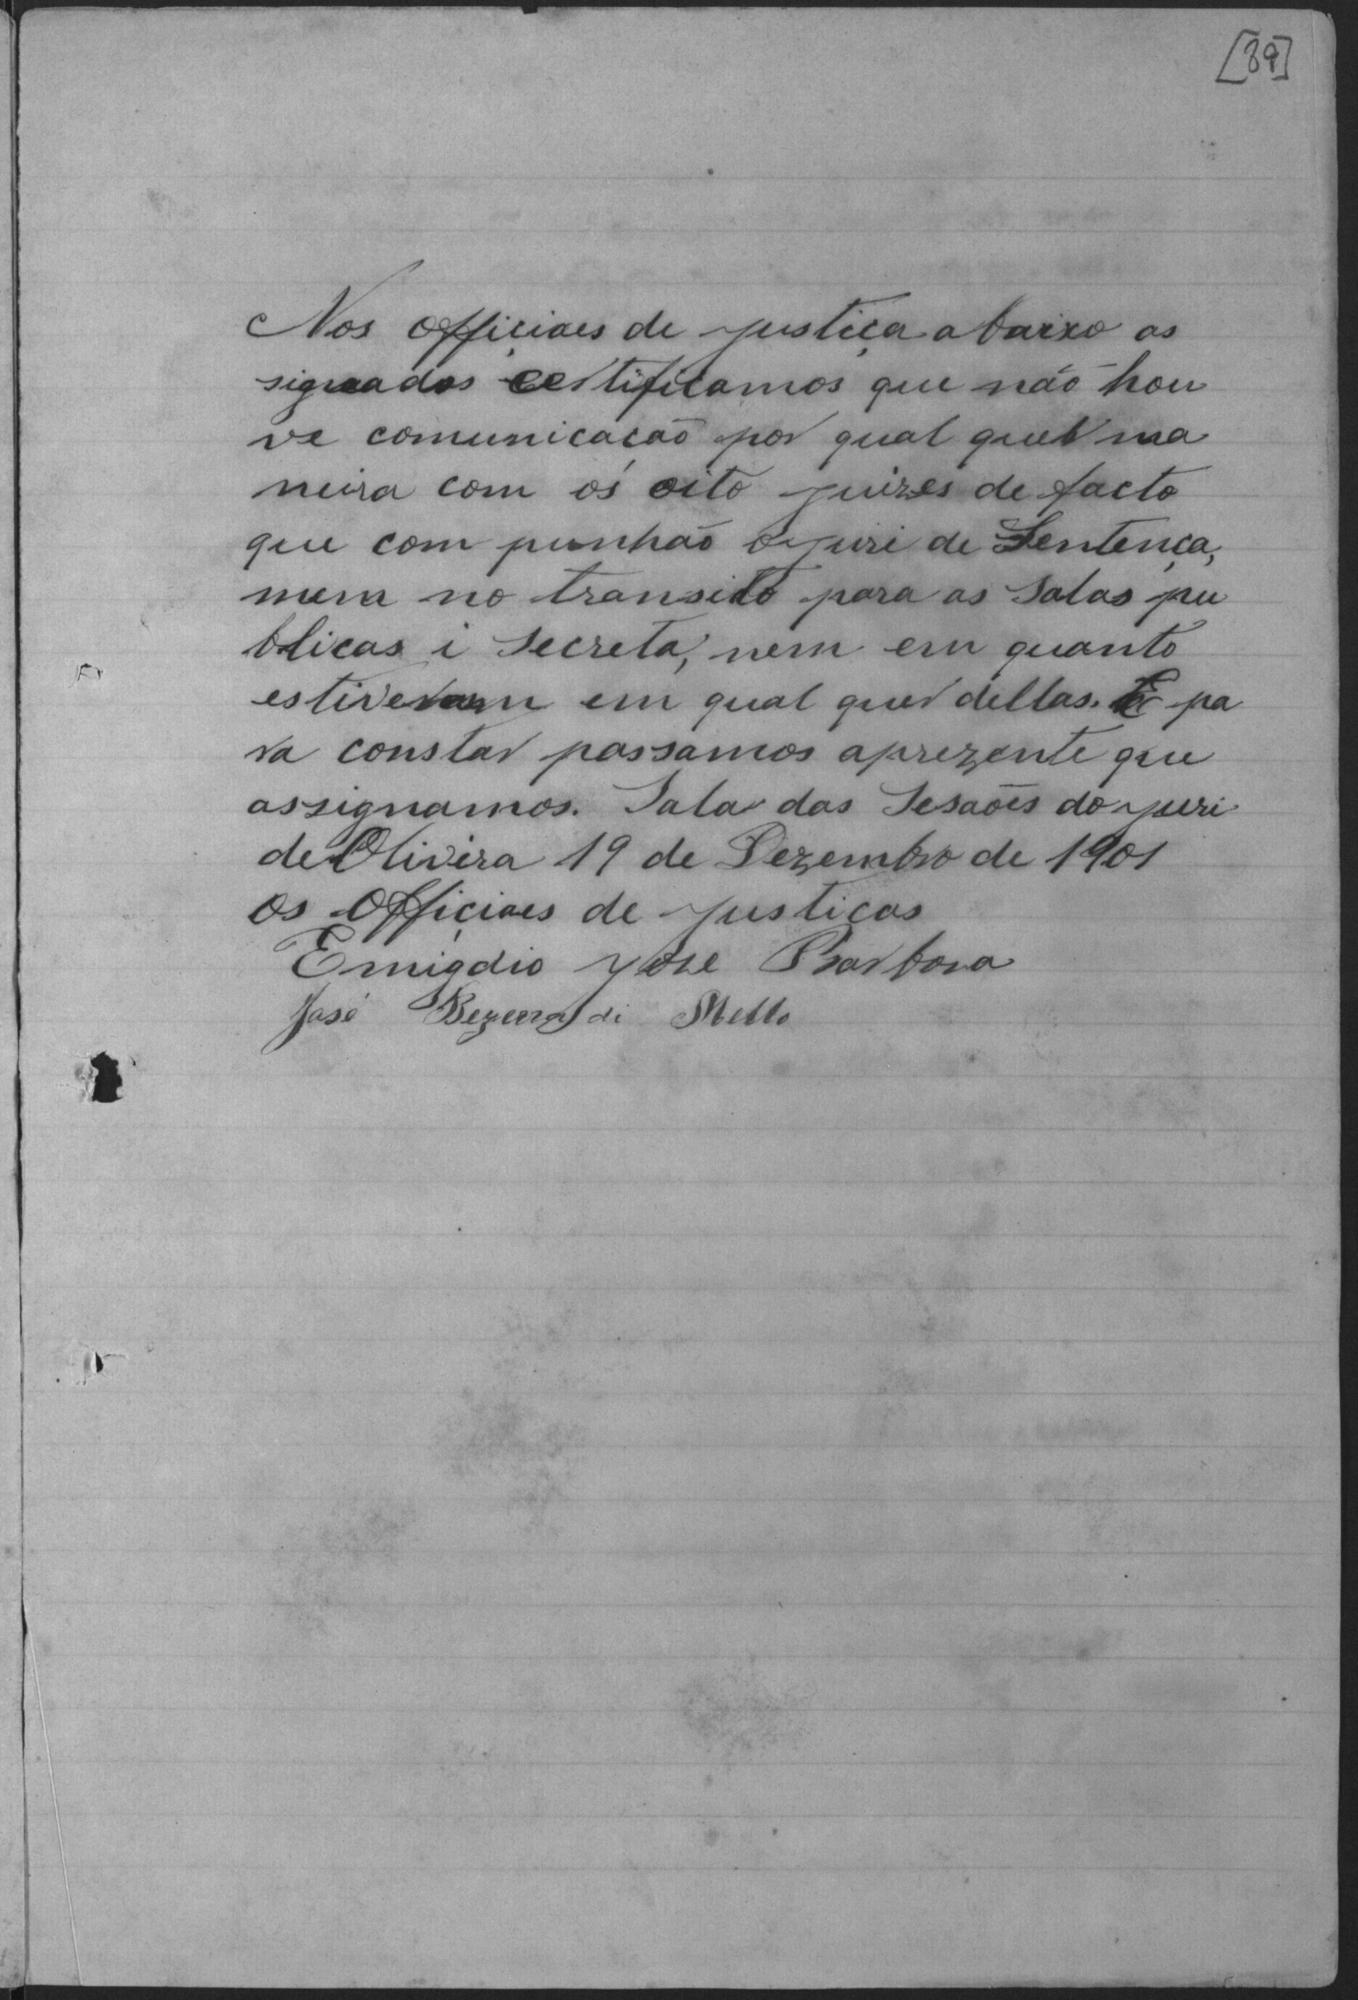 [89]
Nos officiaes de justiça abaixo as
signados certificamos que não hou
ve comunicação por qual quer ma
neira com os oito juizes de facto
que com punhão o juri de Sentença,
nem no transito para as Salas pu
blicas i Secreta, nem em quanto
estiveram em qual quer dellas. E pa
ra constar passamos aprezente que
assignamos. Sala das Sesões do juri
de Olivera 19 de Dezembro de 1901
os Officiaes de justicas
Emigdio José Barbosa
José Bezerra di Mello